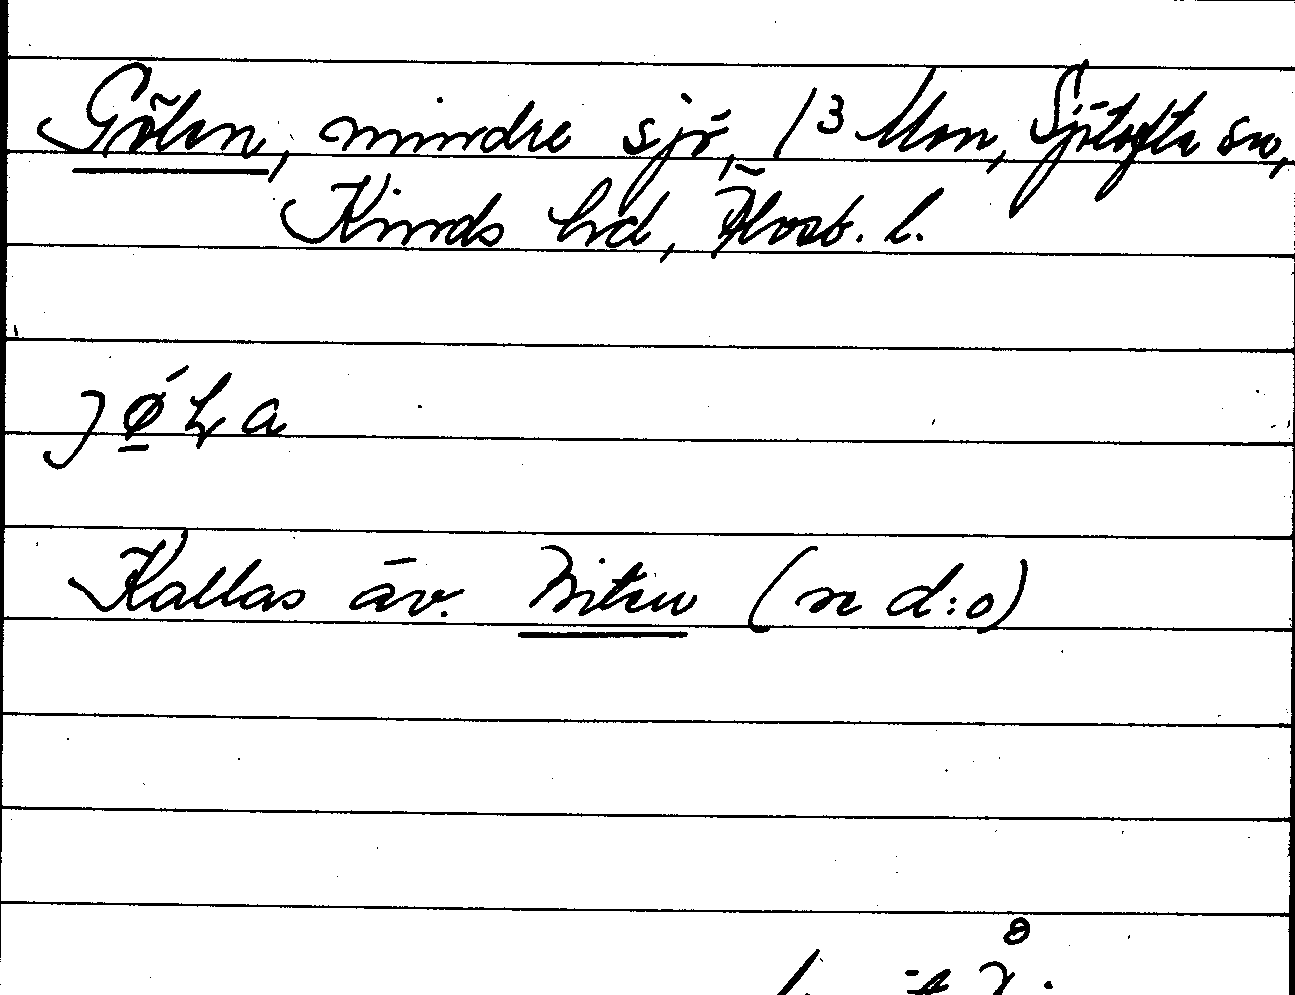 Gölen, mindre sjö, 13 Mon, Sjötofta sn,
Kinds hd, Älvsb. l.
Kallas äv. (se d:o)